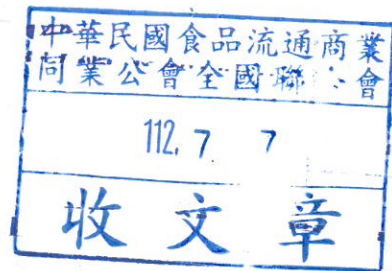 中華民國食品流通商業
同業公會全國聯 會
112. 7 7
收文章